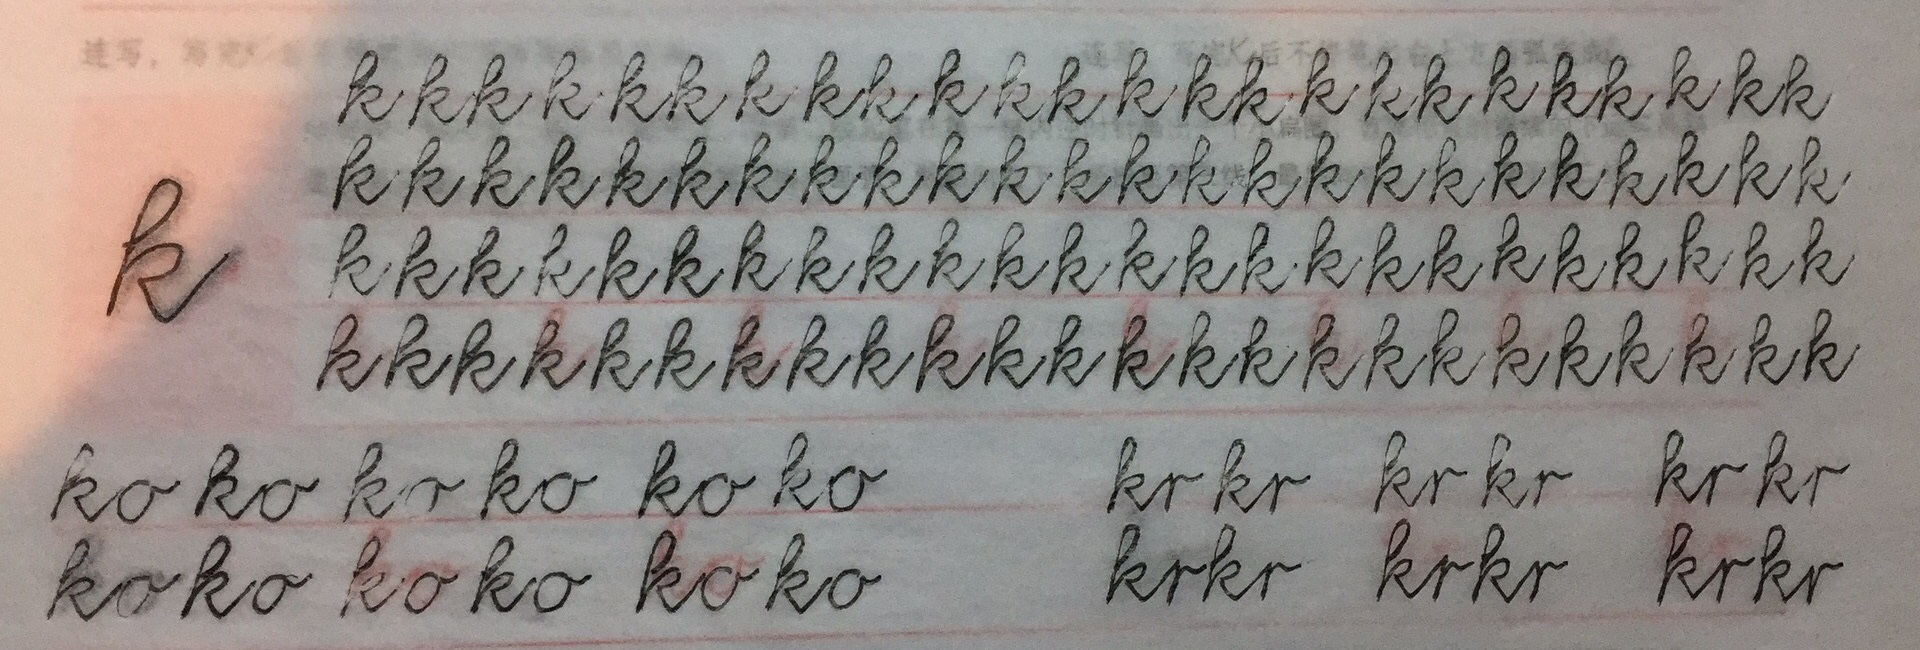 k
k k k k k k k k k k k k k k k k k k k k k k k k
k k k k k k k k k k k k k k k k k k k k k k k k
k k k k k k k k k k k k k k k k k k k k k k k k
k k k k k k k k k k k k k k k k k k k k k k k k
ko ko ko ko ko ko kr kr kr kr kr kr
ko ko ko ko ko ko kr kr kr kr kr kr